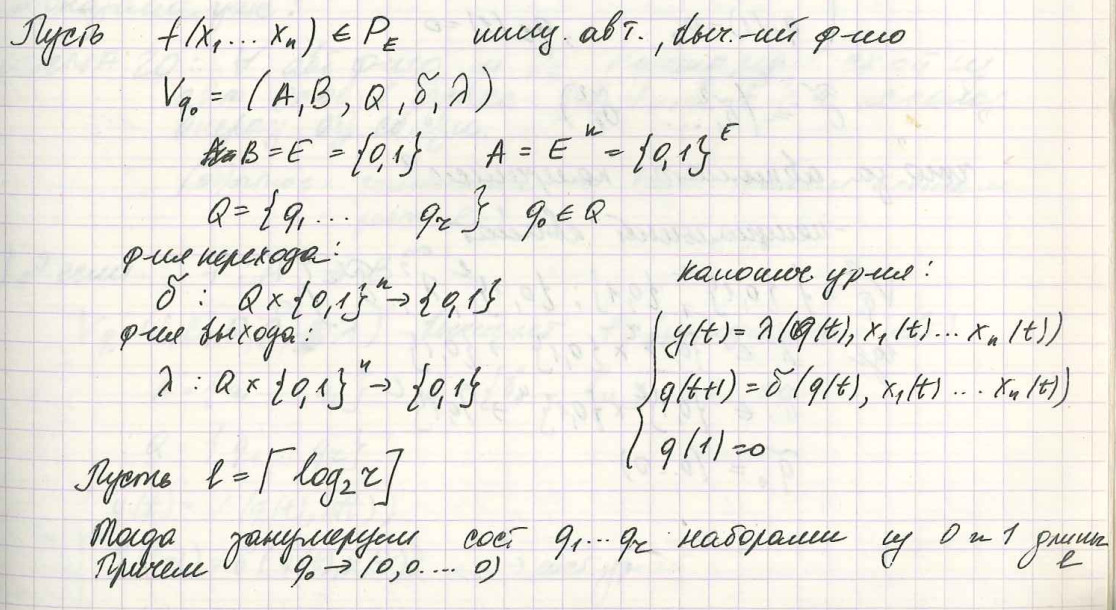 Пусть f(x₁ ... xₙ) ∈ P_E иниц. авт., выч.-ий ф-ию
V_q₀ = (A, B, Q, δ, λ)
B = E = {0,1} A = Eⁿ = {0,1}^E
Q = {q₁ ... qᵣ} q₀ ∈ Q
ф-ия перехода:
δ : Q × {0,1}ⁿ → {0,1}
ф-ия выхода:
λ : Q × {0,1}ⁿ → {0,1}
канонич. ур-ия:
y(t) = λ(q(t), x₁(t) ... xₙ(t))
q(t+1) = δ(q(t), x₁(t) ... xₙ(t))
q(1) = 0
Пусть l = ⌈log₂ r⌉
Тогда занумеруем сост q₁ ... qᵣ наборами из 0 и 1 длины l
Причем q₀ → (0,0 .... 0)